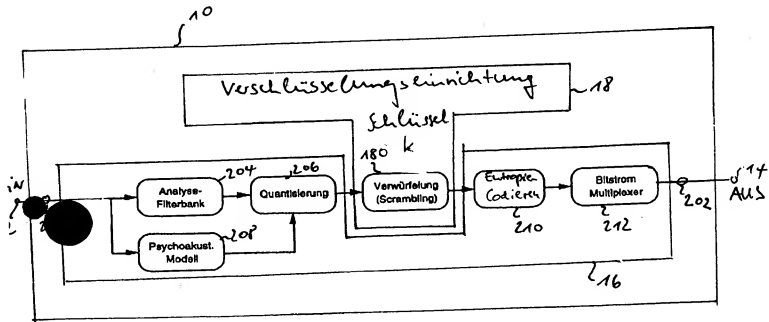 10
Verschlüsselungseinrichtung
18
Schlüssel
k
204
206
180
Analyse-
Filterbank
Quantisierung
Verwürfelung
(Scrambling)
Entropie-
Codieren
Bitstrom
Multiplexer
14
AUS
202
iN
208
210
212
Psychoakust.
Modell
16